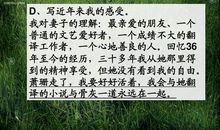 D、写近年来我的感受。
我对妻子的理解：最亲爱的朋友、一个
普通的文艺爱好者，一个成绩不大的翻
译工作者，一个心地善良的人。回忆36
年至今的经历，三十多年我从她那里得
到的精神享受，但她没有看到我的自由。
萧珊走了，我要好好活着，我会与她翻
译的小说与骨灰一道永远在一起。